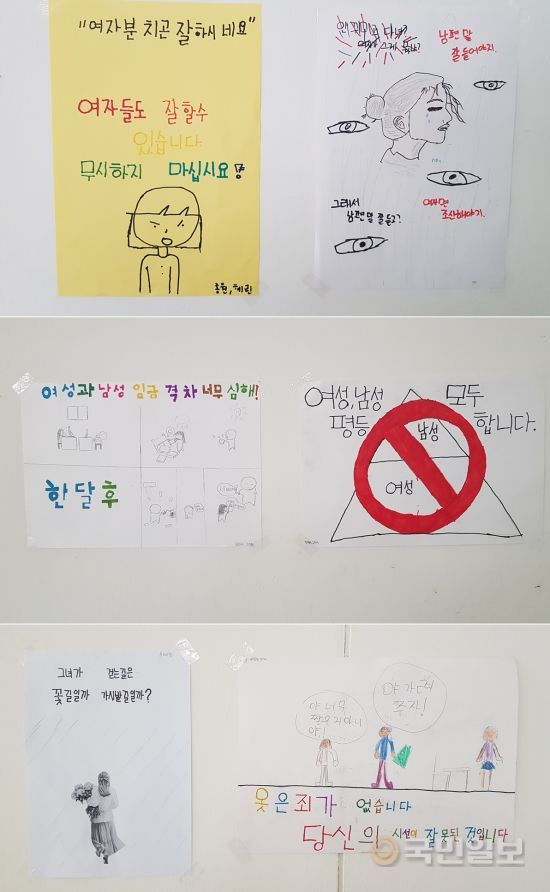 "여자분 치곤 잘하시네요"
여자들도 잘할수
있습니다
무시하지 마십시요
남편말
잘들어야지.
그래서
남편말 잘듣지?
여자면
조신해야지.
여성과 남성 임금 격차 너무 심해!
한달후
여성, 남성 모두
평등 합니다.
남성
여성
그녀가 걷는길은
꽃길일까 가시밭길일까?
야 너무
짧은거아니
야?
야 가려
주자!
옷은죄가 없습니다
당신의 시선이 잘못된 것입니다
국민일보